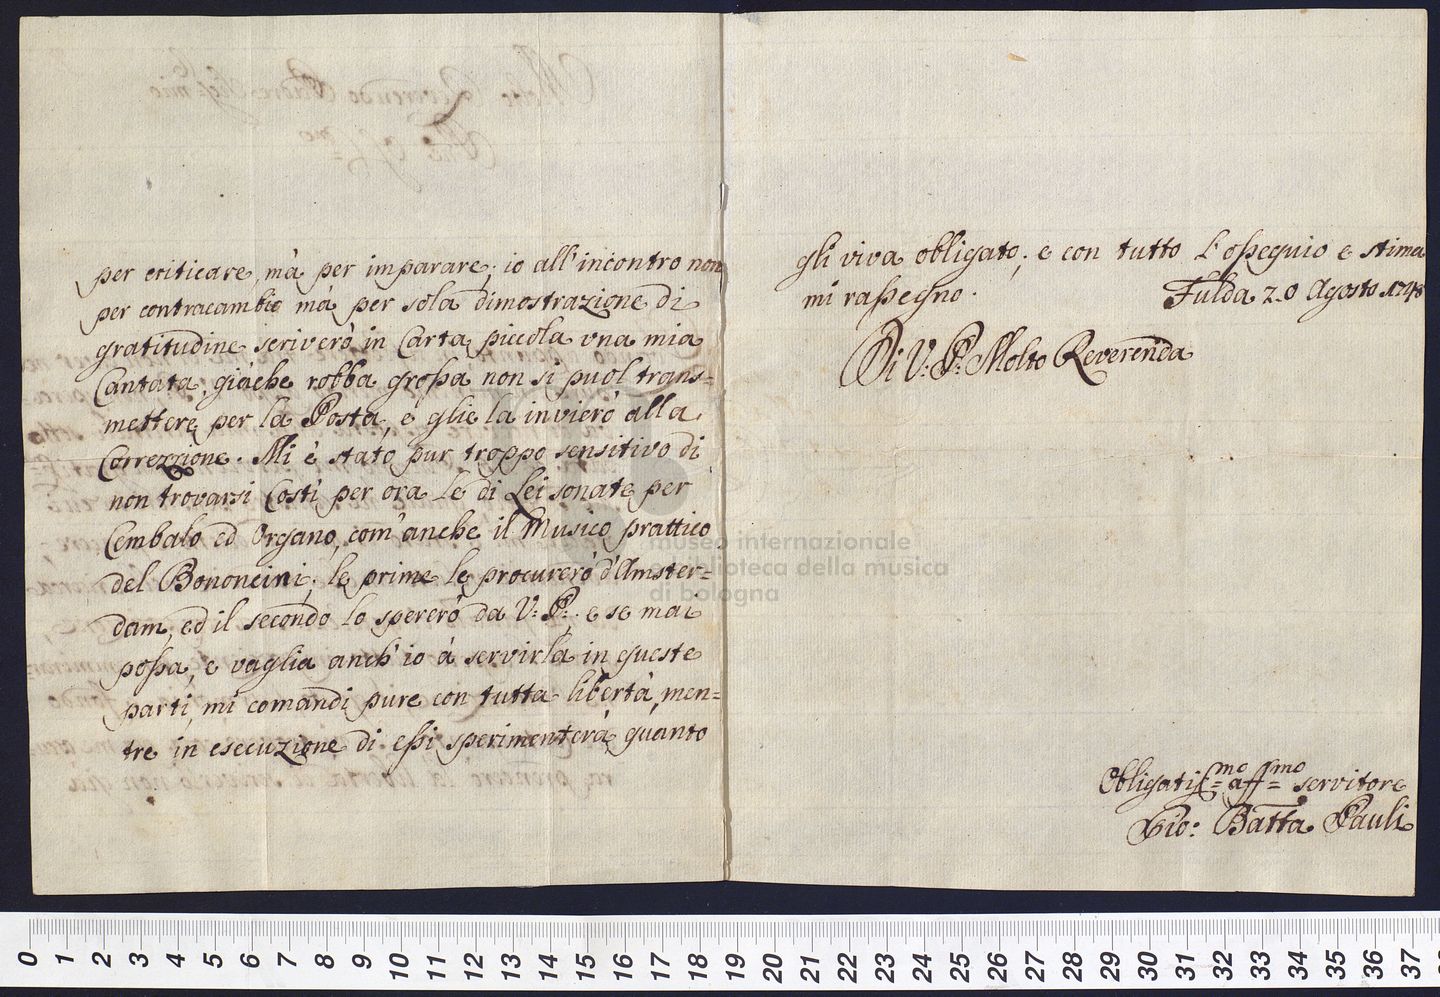 per criticare, mà per imparare; io all'incontro non
per contracambio mà per sola dimostrazione di
gratitudine scriverò in Carta piccola una mia
Cantata, giàche robba grossa non si puol trans=
mettere per la Posta, e glie la invierò alla
Correzzione. Mi è stato pur troppo sensitivo di
non trovarsi Costì per ora le di Lei sonate per
Cembalo ed Organo, com'anche il Musico prattico
del Bononcini; le prime le procurerò d'Amster=
dam, ed il secondo lo spererò da V: P: e se mai
possa, e vaglia anch'io à servirla in queste
parti, mi comandi pure con tutta libertà, men=
tre in esecuzione di essi sperimenterà quanto
gli viva obligato; e con tutto l'ossequio e stima
mi rassegno. Fulda 20 Agosto 1748
Di V: P: Molto Reverenda
Obligatiss=mo aff=mo servitore
Gio: Batta Pauli
museo internazionale
e biblioteca della musica
di bologna
0 1 2 3 4 5 6 7 8 9 10 11 12 13 14 15 16 17 18 19 20 21 22 23 24 25 26 27 28 29 30 31 32 33 34 35 36 37